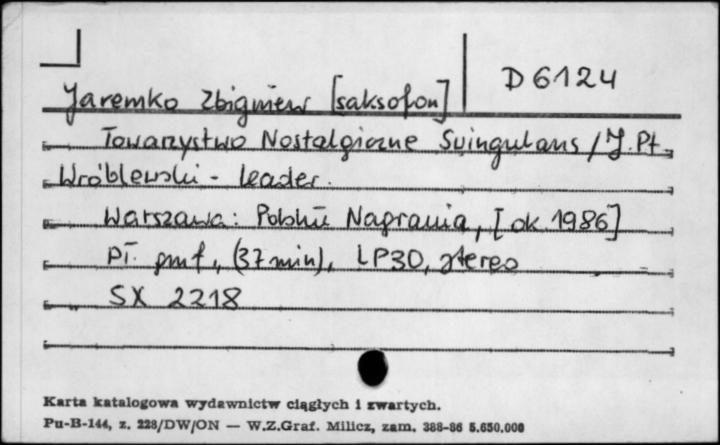 D 6124
Jaremko Zbigniew [saksofon]
Towarzystwo Nostalgiczne Swingulans / J. Pt.
Wróblewski - leader.
Warszawa: Polskie Nagrania, [ok. 1986]
Pł. gmf., (37 min), LP30, stereo
SX 2218
Karta katalogowa wydawnictw ciągłych i zwartych.
Pu-B-144, z. 228/DW/ON — W.Z.Graf. Milicz, zam. 388-86 5.650.000